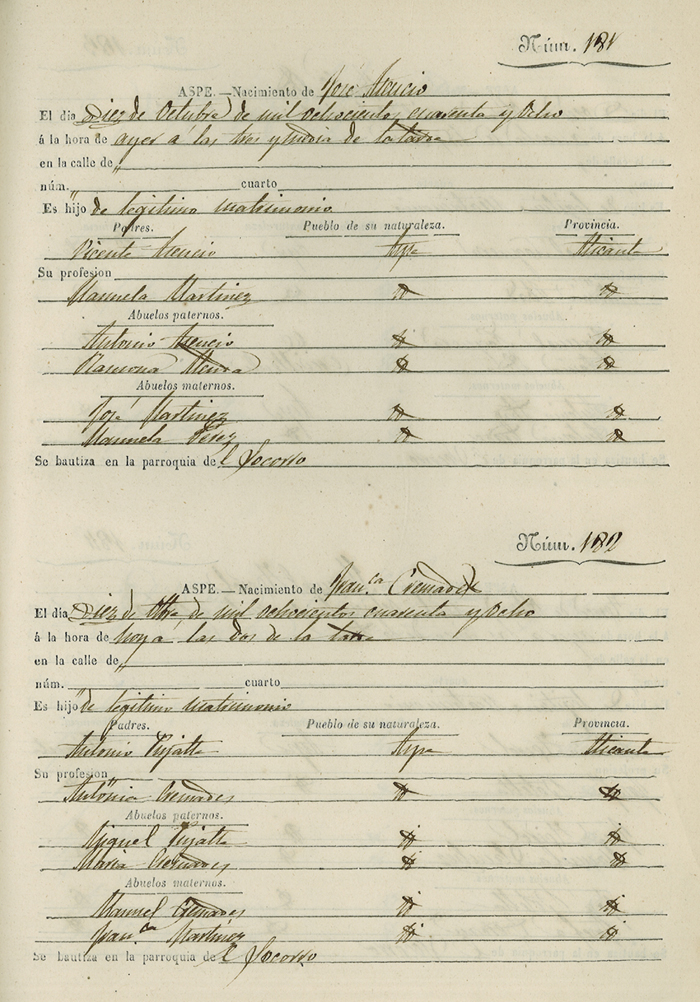 Núm. 181
ASPE.—Nacimiento de José Asencio
El día Diez de Octubre de mil ochocientos cuarenta y Ocho
á la hora de ayer á las tres y media de la tarde
en la calle de "
núm. " cuarto
Es hijo de legitimo matrimonio
Padres. Pueblo de su naturaleza. Provincia.
Vicente Asencio Aspe Alicante
Su profesion
Manuela Martinez id id
Abuelos paternos.
Antonio Asencio id id
Ramona id id
Abuelos maternos.
José Martinez id id
Manuela Pérez id id
Se bautiza en la parroquia de l Socorro
Núm. 182
ASPE.—Nacimiento de Fran.ca Cremades
El día Diez de de mil ochocientos cuarenta y Ocho
á la hora de hoy a las dos de la tarde
en la calle de "
núm. cuarto
Es hijo de legitimo matrimonio
Padres. Pueblo de su naturaleza. Provincia.
Antonio Aspe Alicante
Su profesion "
Antonia Cremades id id
Abuelos paternos.
Miguel id id
Maria Cremades id id
Abuelos maternos.
Manuel Cremades id id
Fran.ca Martinez id id
Se bautiza en la parroquia de l Socorro